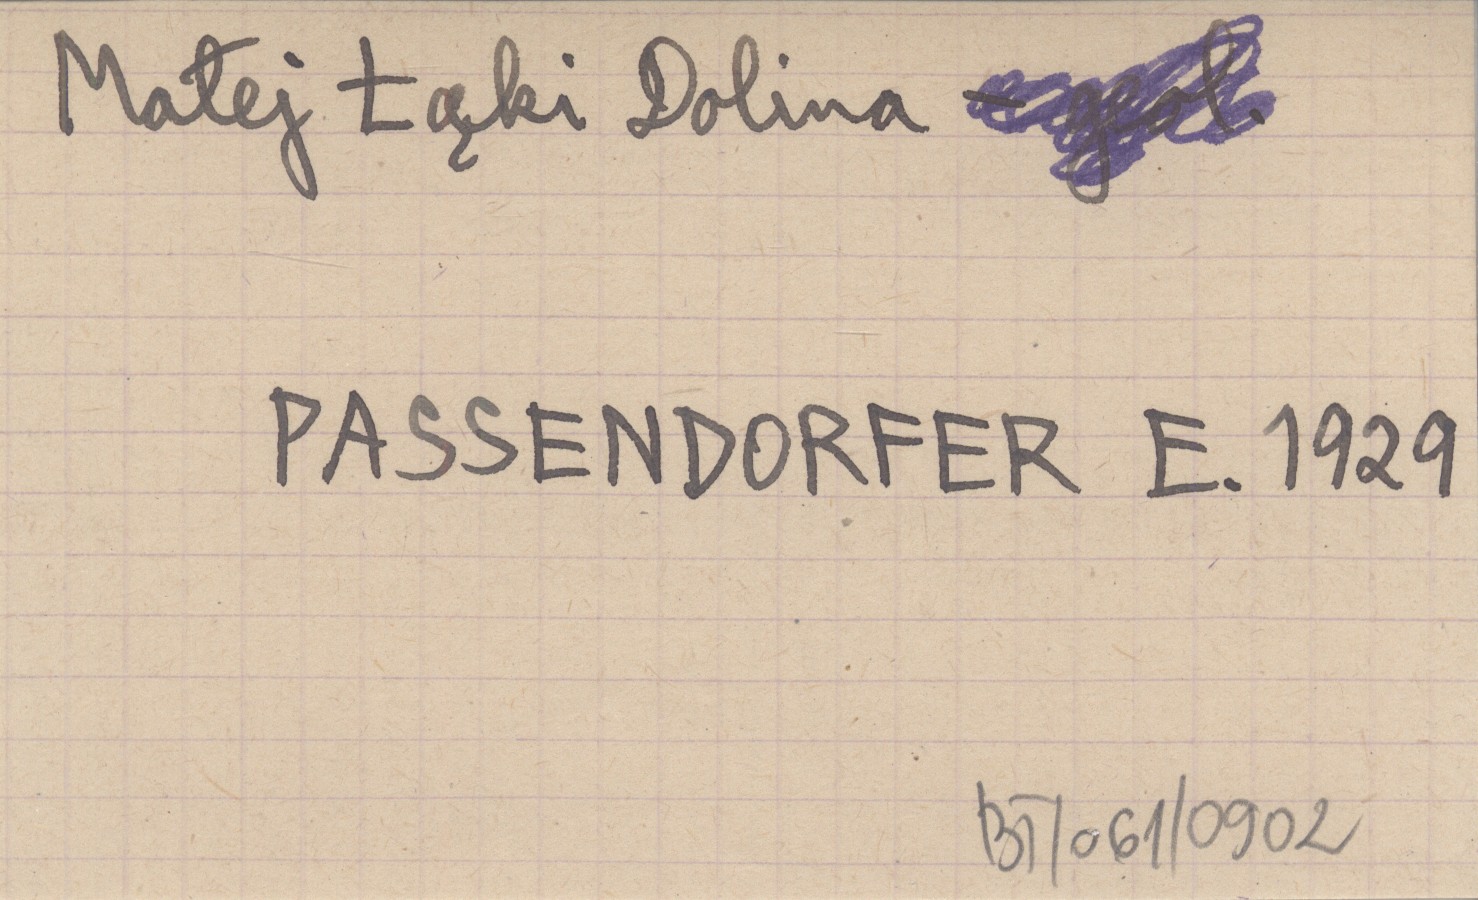 Małej Łąki Dolina - geol.
PASSENDORFER E. 1929
BT/061/0902